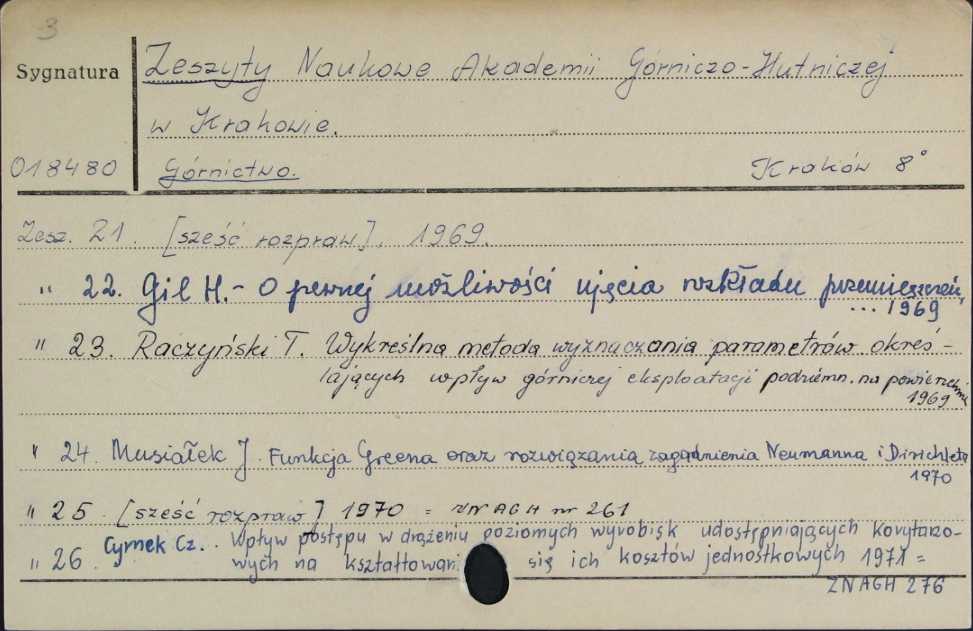 3
Sygnatura
Zeszyty Naukowe Akademii Górniczo-Hutniczej
w Krakowie.
018480 Górnictwo. Kraków 8°
Zesz. 21. [sześć rozpraw]. 1969.
" 22. Gil H.- O pewnej możliwości ujęcia rozkładu przemieszczeń,
... 1969
" 23. Raczyński T. Wykreślna metoda wyznaczania parametrów okreś-
lających wpływ górniczej eksploatacji podziemn. na powierzchnię
1969
" 24. Musiałek J. Funkcja Greena oraz rozwiązania zagadnienia Neumanna i Dirichleta
1970
" 25. [sześć rozpraw] 1970 = ZNAGH nr 261
" 26. Cymek Cz.. Wpływ postępu w drążeniu poziomych wyrobisk udostępniających korytarzo-
wych na kształtowani się ich kosztów jednostkowych 1971 =
ZNAGH 276